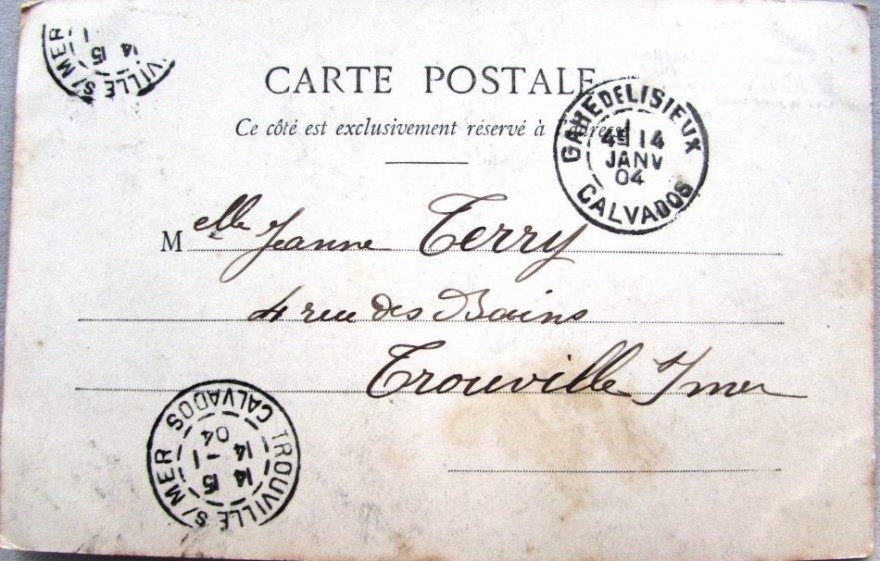 S/MER
VILLE
14 15
1
CARTE POSTALE
Ce côté est exclusivement réservé à l'adresse
GARE DE LISIEUX
4E 14
JANV
04
CALVADOS
Melle Jeanne Terry
4 rue des Bains
Trouville s/mer
TROUVILLE S/MER
14 15
14 -1
04
CALVADOS